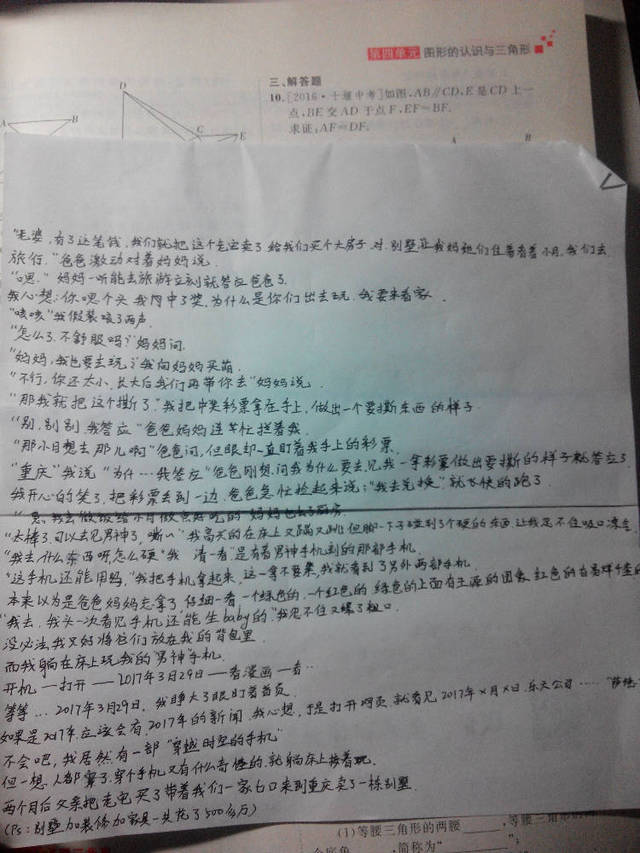 第四单元 图形的认识与三角形
三、解答题
10.[2016·十堰中考]如图,AB∥CD,E是CD上一
点,BE交AD于点F,EF=BF.
求证:AF=DF.
D
A B C E
A B
"老婆,有了这笔钱,我们就把这个老宅卖了给我们买个大房子.对.别墅.让我妈她们住着看着小月.我们去
旅行."爸爸激动对着妈妈说.
"嗯."妈妈一听能去旅游立刻就答应爸爸了.
我心想:你嗯个头.我中了奖,为什么是你们出去玩.我要来看家.
"咳咳"我假装咳了两声.
"怎么了.不舒服吗?"妈妈问.
"妈妈,我也要去玩."我向妈妈卖萌.
"不行,你还太小.长大后我们再带你去"妈妈说.
"那我就把这个撕了."我把中奖彩票拿在手上,做出一个要撕东西的样子.
"别,别别.我答应"爸爸妈妈连忙拦着我.
"那小月想去那儿啊"爸爸问,但眼却一直盯着我手上的彩票.
"重庆"我说"为什…我答应"爸爸刚想问我为什么要去,见我一拿彩票做出要撕的样子就答应了.
我开心的笑了,把彩票丢到一边.爸爸急忙捡起来说:"我去兑换"就飞快的跑了.
"太棒了,可以去见男神了,嘶"我高兴的在床上又蹦又跳但脚一下子碰到了个硬的东西让我忍不住吸口凉气
"我去什么东西啊,怎么硬"我 清一看"是有着男神手机
"这手机还能用吗,"我把手机拿起来,这一拿不要紧,我就看到了另外两部手机.
本来以为是爸爸妈妈忘拿了,仔细一看 一个绿色的,一个红色的 绿色的上面有王源的图像.红色的
"我去,我头一次看见手机还能生baby的"我忍不住又爆了粗口.
没办法,我只好将它们放在我的背包里.
而我躺在床上玩我的"男神"手机.
开机—打开——2017年3月29日——看漫画—看…
等等…2017年3月29日,我睁大了眼盯着首页.
如果是2017年,应该会有,2017年的新闻.我心想,于是打开网页.就看见2017年×月×日.乐天公司……"萨德
不会吧,我居然有一部"穿越时空的手机"
但一想.人都穿了.穿个手机又有什么奇怪的,就躺床上接着玩.
两个月后父亲把老宅买了带着我们一家七口来到重庆卖了一栋别墅.
(Ps:别墅加装修加家具一共花了500多万)
(1)等腰三角形的两腰 ,等腰三角形的
个底角 ,简称为" ";